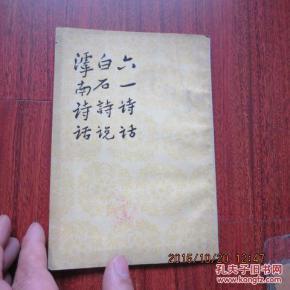 六一诗话
白石詩说
滹南诗话
2015/10/20 12:47
孔夫子旧书网